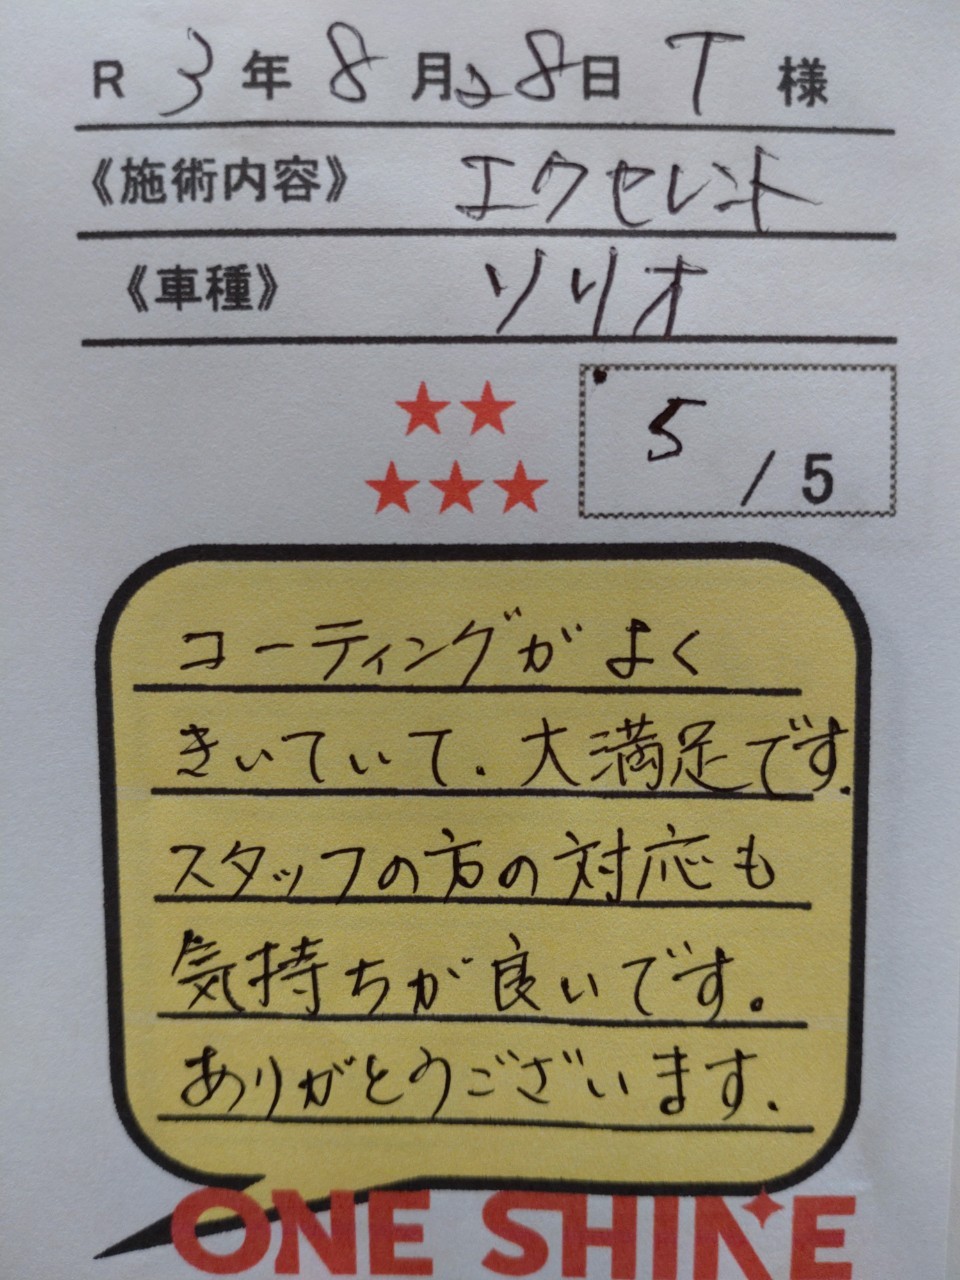 R 3年 8月28日 T 様
《施術内容》 エクセレント
《車種》 ソリオ
5 / 5
コーティングがよく
きいていて、大満足です.
スタッフの方の対応も
気持ちが良いです。
ありがとうございます.
ONE SHINE